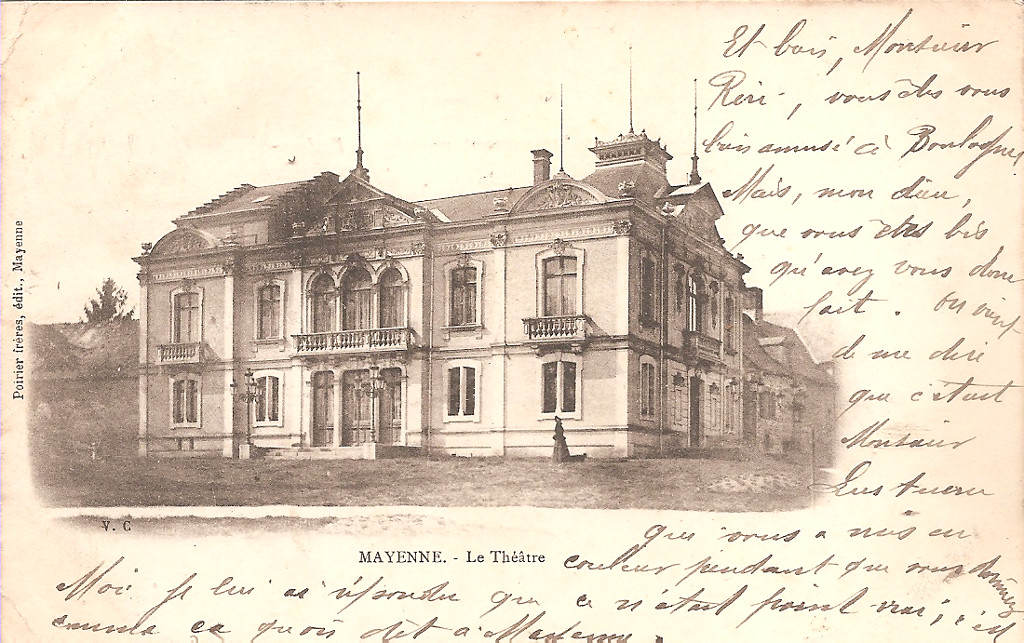 Et bois, Monsieur
Réri-, vous êtes vous
bois amusé à Boulogne
Mais, mon dieu,
que vous êtes bis
qu'avez vous donc
fait. On vient
de me dire
que c'était
Monsieur
Lustucru
qui vous a mis en
couleur pendant que vous dormiez
Moi je lui ai répondu que ce n'était point vrai, c'est
comme ça qu'on dit à Mayenne.
Poirier frères, édit., Mayenne
V. C
MAYENNE. - Le Théâtre